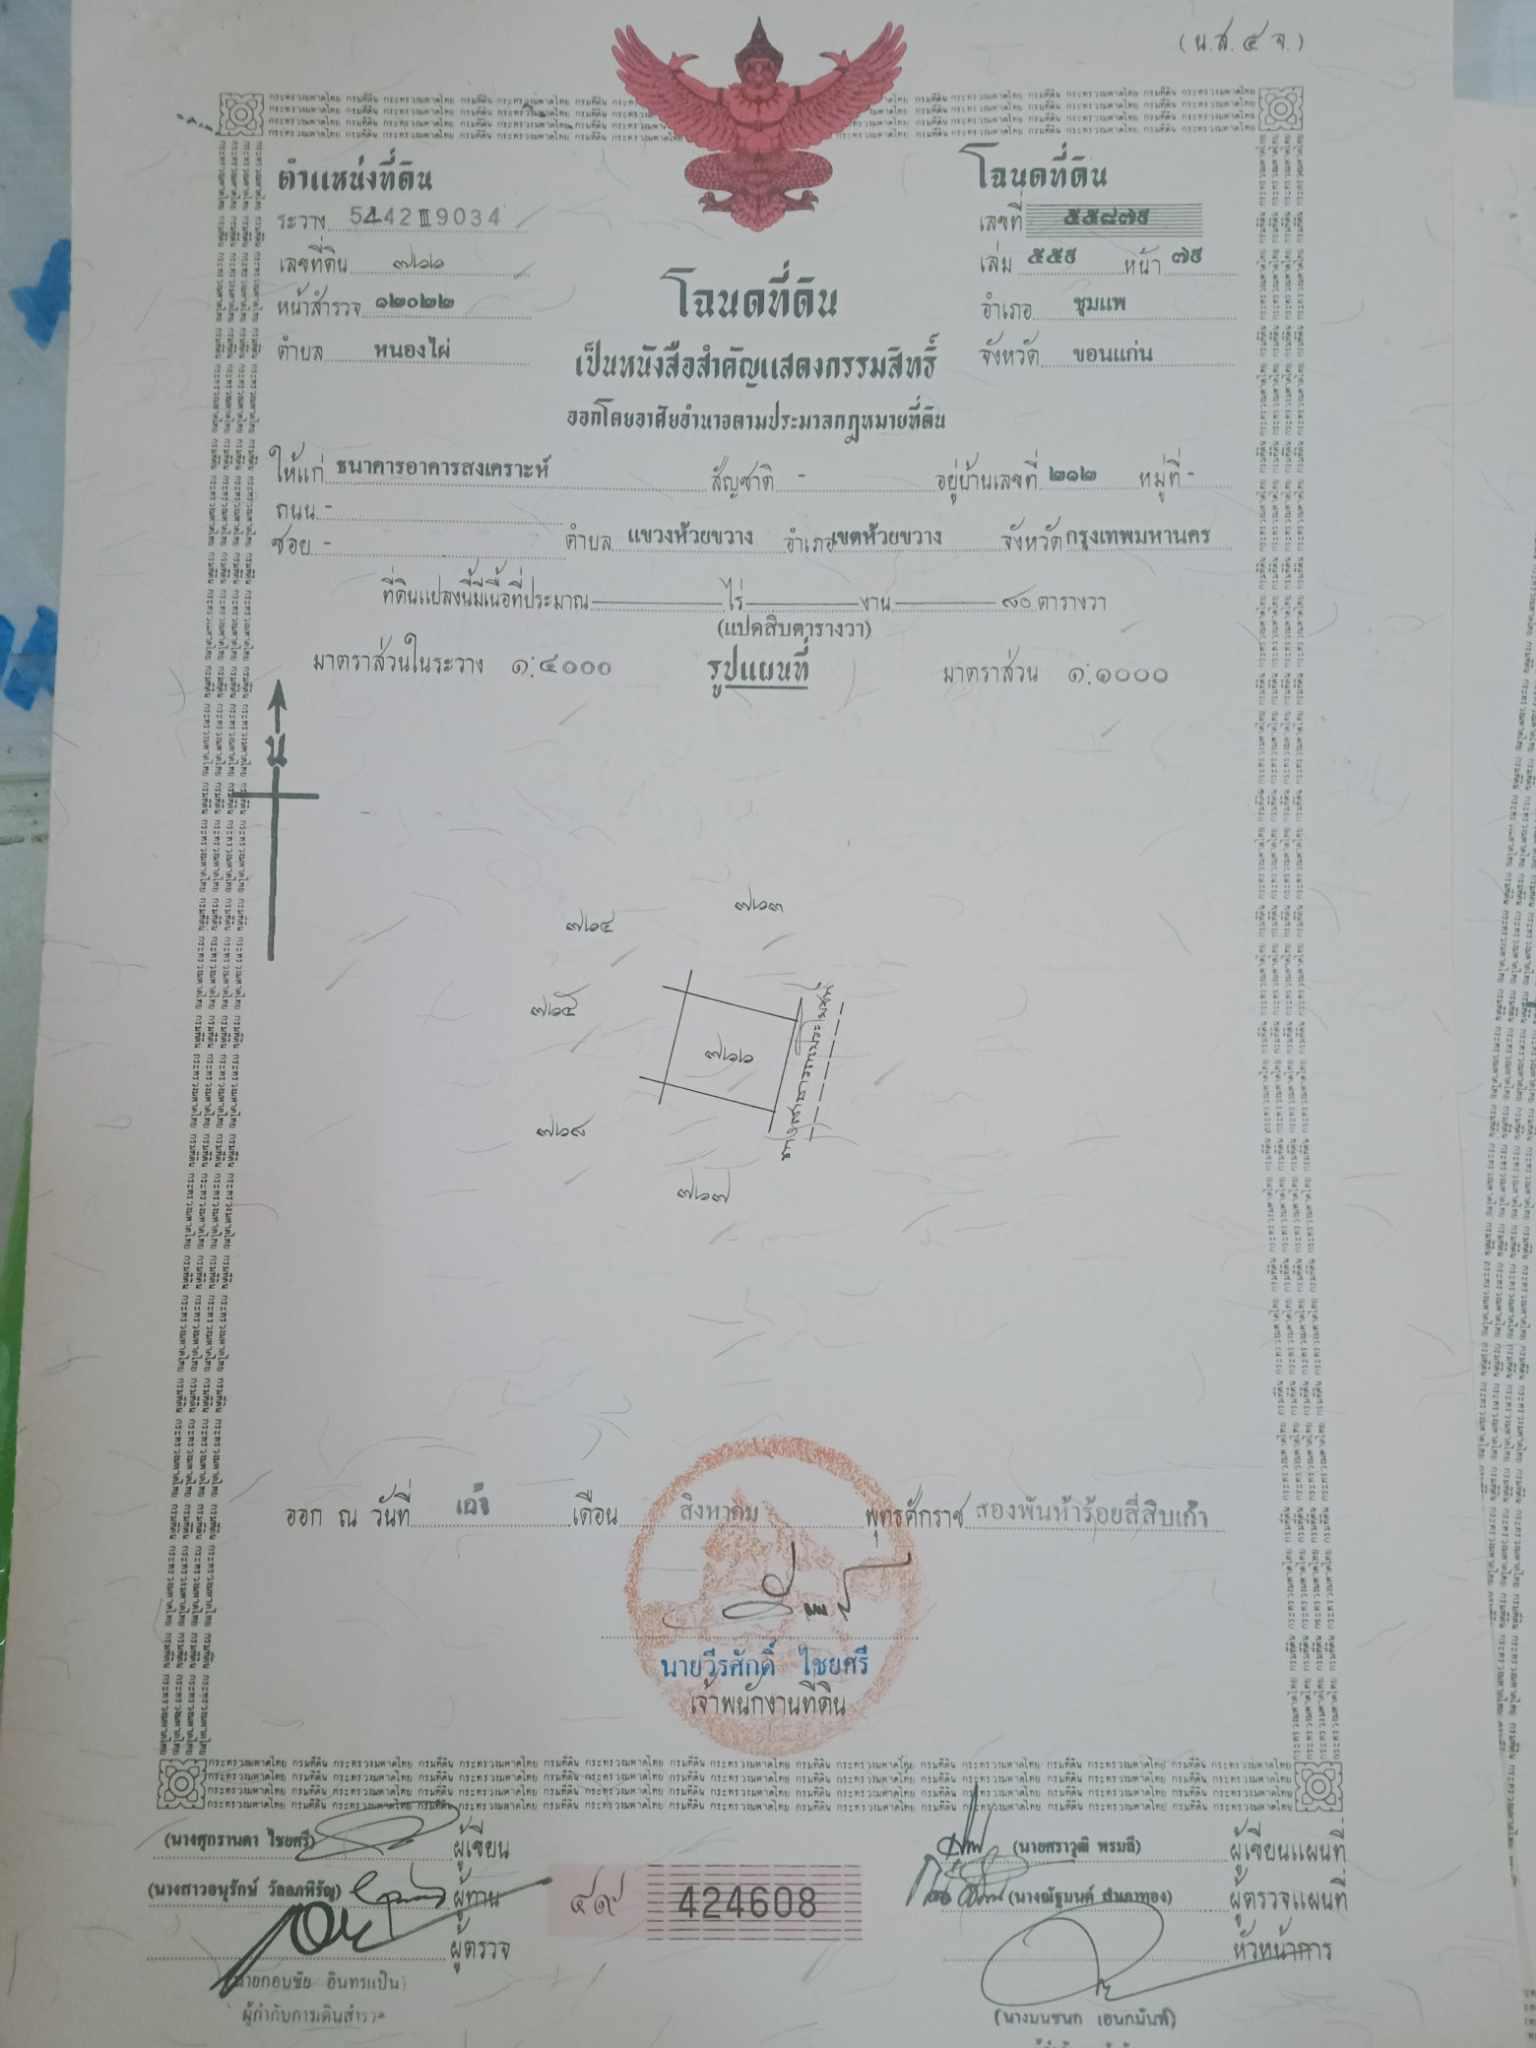 (น.ส. ๔ จ.)
ตำแหน่งที่ดิน
ระวาง 5442 III 9034
เลขที่ดิน ๗๖๖
หน้าสำรวจ ๑๒๐๒๒
ตำบล หนองไผ่
โฉนดที่ดิน
เลขที่ ๕๕๘๗๕
เล่ม ๕๕๙ หน้า ๗๕
อำเภอ ชุมแพ
จังหวัด ขอนแก่น
โฉนดที่ดิน
เป็นหนังสือสำคัญแสดงกรรมสิทธิ์
ออกโดยอาศัยอำนาจตามประมวลกฎหมายที่ดิน
ให้แก่ ธนาคารอาคารสงเคราะห์ สัญชาติ - อยู่บ้านเลขที่ ๒๑๒ หมู่ที่ -
ถนน -
ซอย - ตำบล แขวงห้วยขวาง อำเภอ เขตห้วยขวาง จังหวัด กรุงเทพมหานคร
ที่ดินแปลงนี้มีเนื้อที่ประมาณ ไร่ งาน ๘๐ ตารางวา
(แปดสิบตารางวา)
มาตราส่วนในระวาง ๑:๔๐๐๐ รูปแผนที่ มาตราส่วน ๑:๑๐๐๐
น
๗๖๓
๗๖๔
๗๖๕
๗๖๖
ทางสาธารณประโยชน์
๗๖๘
๗๖๗
ออก ณ วันที่ เดือน สิงหาคม พุทธศักราช สองพันห้าร้อยสี่สิบเก้า
นายวีรศักดิ์ ไชยศรี
เจ้าพนักงานที่ดิน
กระทรวงมหาดไทย กรมที่ดิน
(นางศุกรานดา ไชยศรี) ผู้เขียน
(นางสาวอนุรักษ์ วัลลภหิรัญ) ผู้ทาน
ผู้ตรวจ
(นายกอบชัย อินทรแป้น)
ผู้กำกับการเดินสำรวจ
424608
(นายศราวุฒิ พรมลี) ผู้เขียนแผนที่
ผู้ตรวจแผนที่
หัวหน้าการ